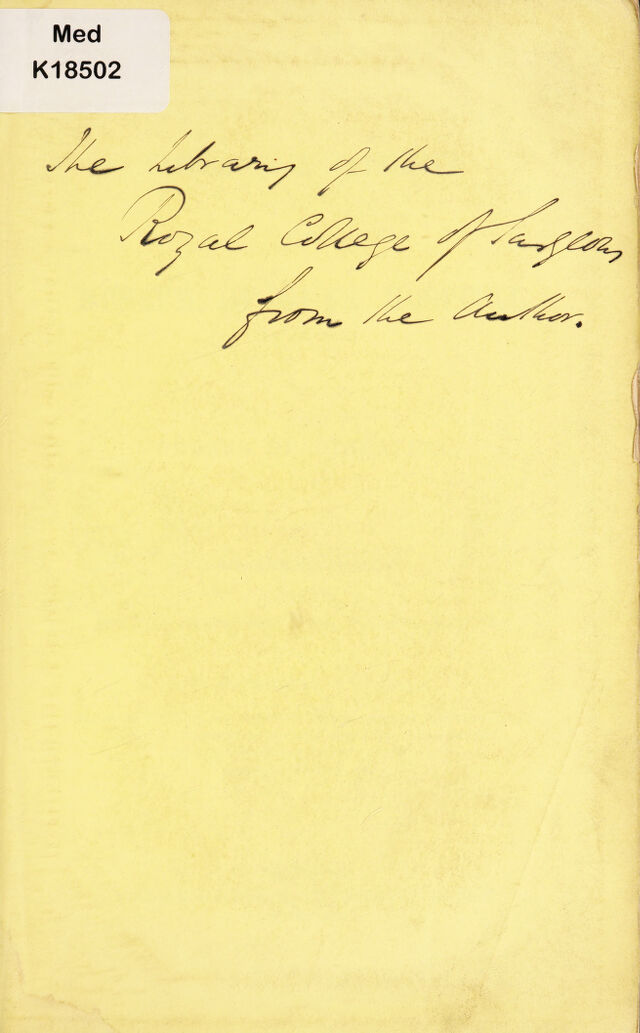 Med
K18502
The Library of the
Royal College of Surgeons
from the Author.